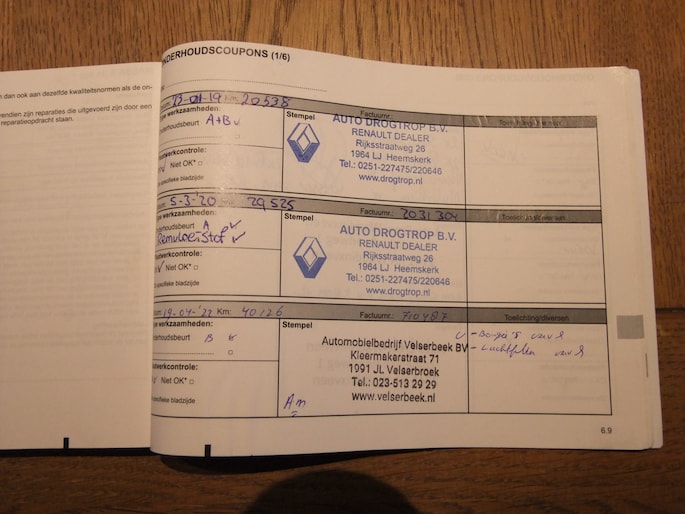 n dan ook aan dezelfde kwaliteitsnormen als de on-
endien zijn reparaties die uitgevoerd zijn door een
reparatieopdracht staan.
NDERHOUDSCOUPONS (1/6)
-19 Km: 20538 Factuurnr.:
e werkzaamheden:
derhoudsbeurt A+B v
Stempel
AUTO DROGTROP B.V.
RENAULT DEALER
Rijksstraatweg 26
1964 LJ Heemskerk
Tel.: 0251-227475/220646
www.drogtrop.nl
atwerkcontrole:
Niet OK* □
specifieke bladzijde
5-3-'20 29525 Factuurnr.: 2031304
e werkzaamheden:
derhoudsbeurt A ✓
Remvloeistof ✓
Stempel
AUTO DROGTROP B.V.
RENAULT DEALER
Rijksstraatweg 26
1964 LJ Heemskerk
Tel.: 0251-227475/220646
www.drogtrop.nl
atwerkcontrole:
✓ Niet OK* □
specifieke bladzijde
19-04-'22 Km: 40126 Factuurnr.: 710487 Toelichting/diversen
werkzaamheden:
erhoudsbeurt B
Stempel
Automobielbedrijf Velserbeek BV
Kleermakerstraat 71
1991 JL Velserbroek
Tel.: 023-513 29 29
www.velserbeek.nl
- Bougie's
- Luchtfilter
twerkcontrole:
Niet OK* □
specifieke bladzijde
Am
6.9